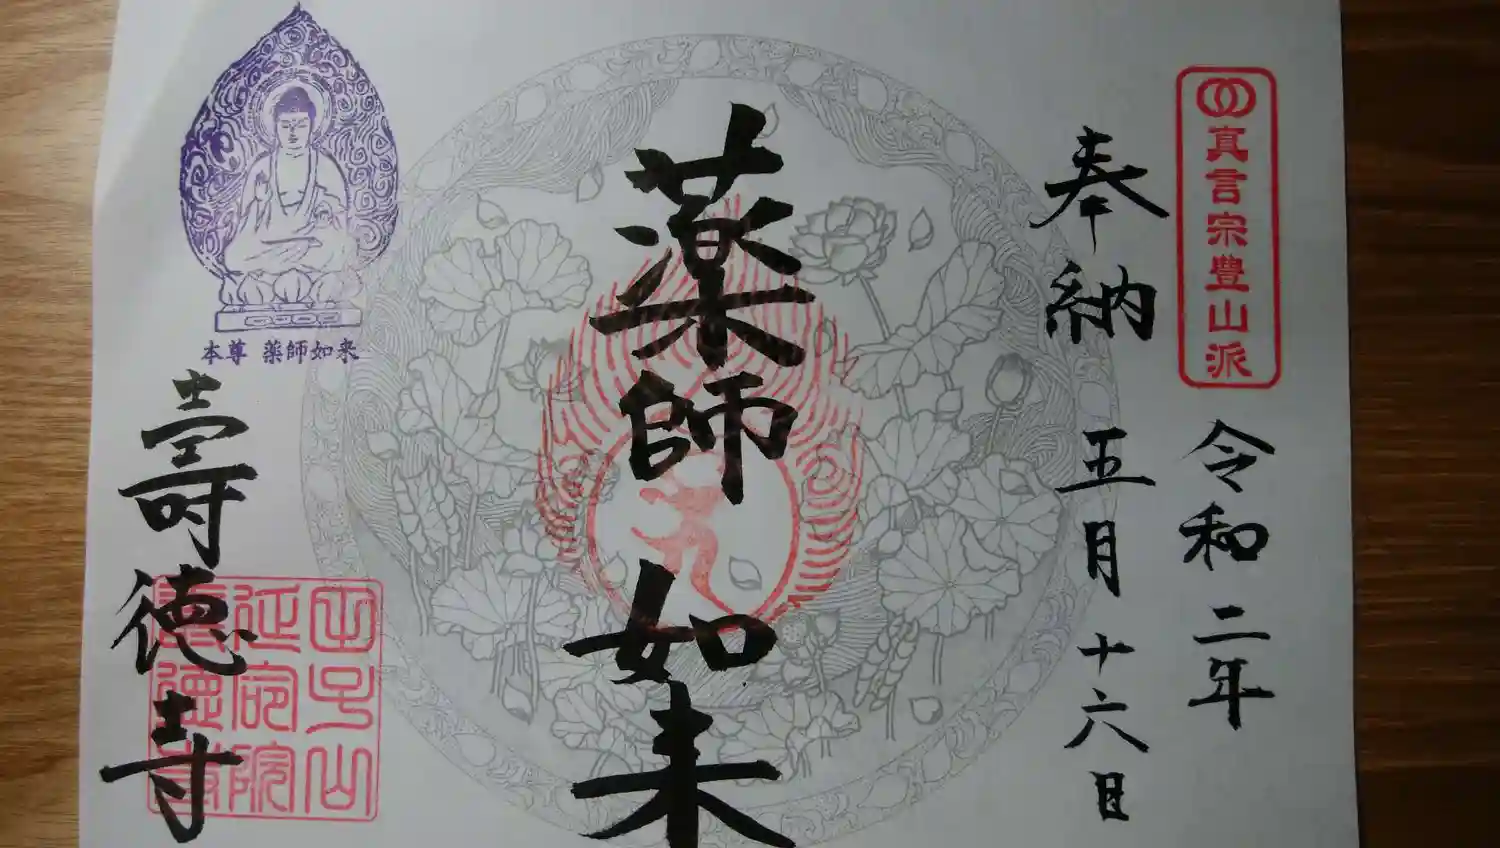 真言宗豊山派
令和二年
奉納
五月十六日
薬師如来
本尊 薬師如来
壽徳寺